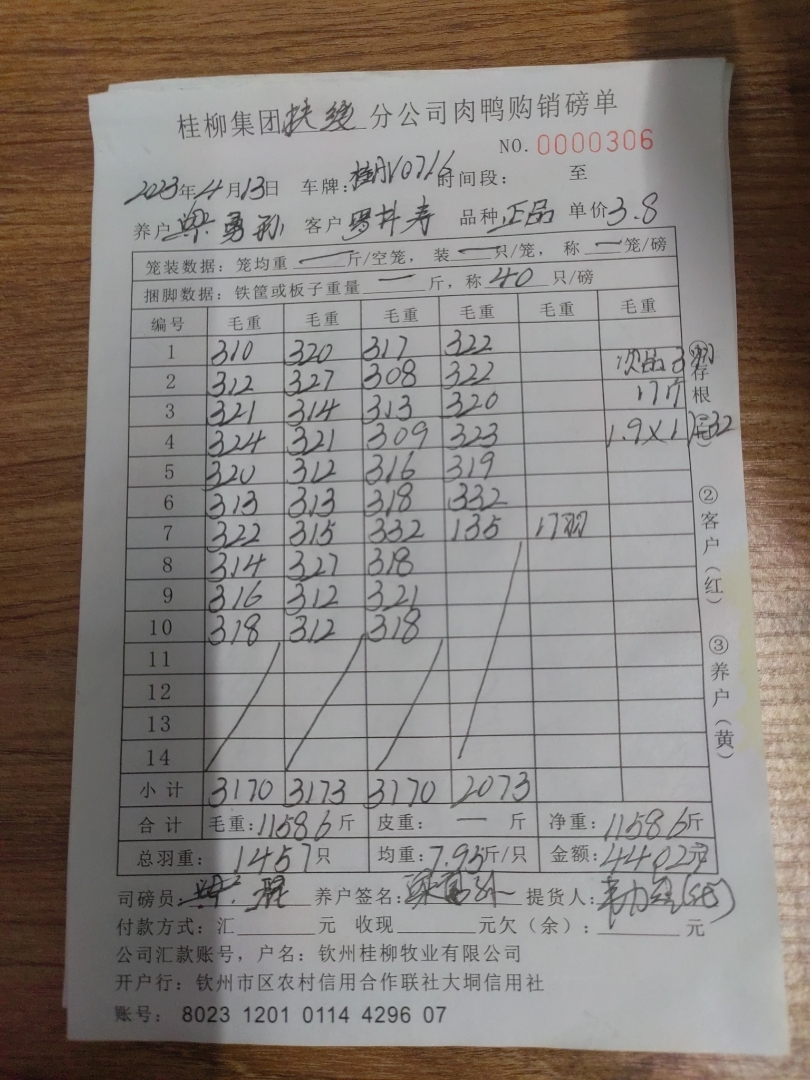 桂柳集团扶绥分公司肉鸭购销磅单
NO. 0000306
2023年4月13日 车牌: 时间段: 至
养户 勇 客户 品种 正品 单价 3.8
笼装数据: 笼均重 一 斤/空笼, 装 一 只/笼, 称 一 笼/磅
捆脚数据: 铁筐或板子重量 一 斤, 称 40 只/磅
编号 毛重 毛重 毛重 毛重 毛重 毛重
1 310 320 317 322
2 312 327 308 322 次品3羽
3 321 314 313 320 17斤
4 324 321 309 323 1.9×17=32
5 320 312 316 319
6 313 313 318 332
7 322 315 332 135 17羽
8 314 327 318
9 316 312 321
10 318 312 318
11
12
13
14
小计 3170 3173 3170 2073
合计 毛重: 11586斤 皮重: 一 斤 净重: 11586斤
总羽重: 1457只 均重: 7.95斤/只 金额: 44027元
司磅员: 养户签名: 提货人:
付款方式: 汇 元 收现 元欠(余): 元
公司汇款账号, 户名: 钦州桂柳牧业有限公司
开户行: 钦州市区农村信用合作联社大垌信用社
账号: 8023 1201 0114 4296 07
①存根
②客户(红)
③养户(黄)